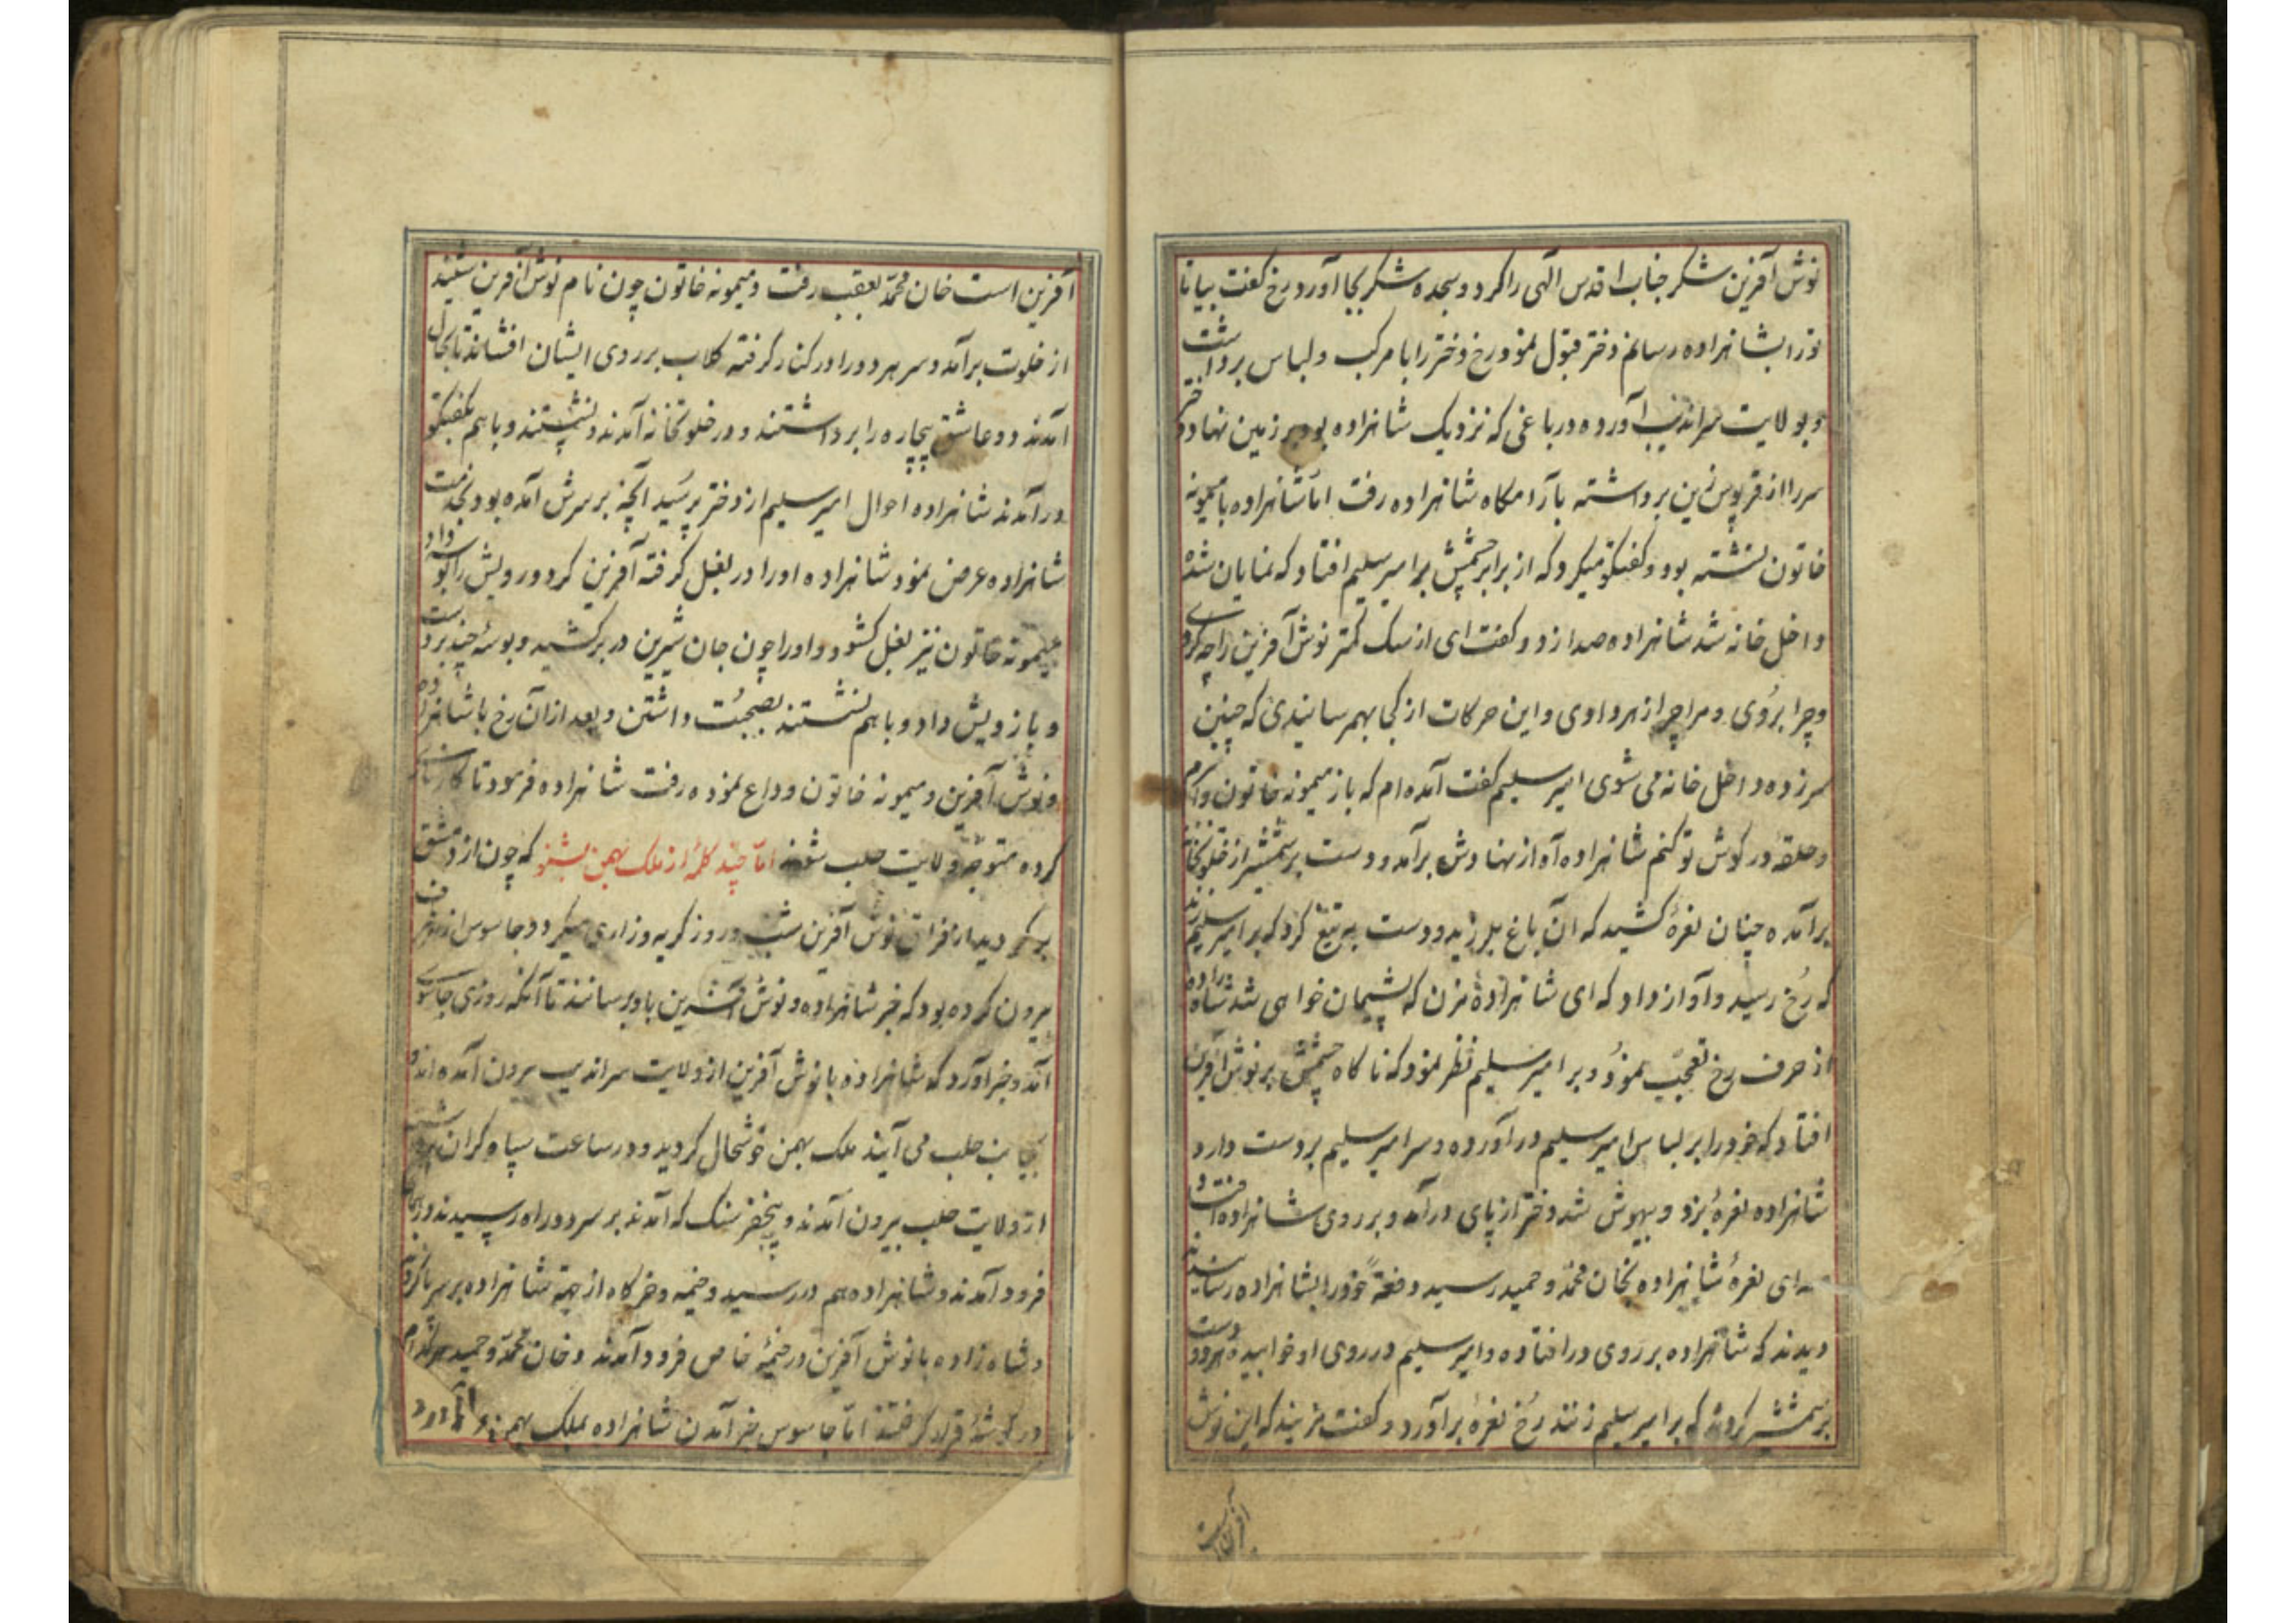 نوش آفرین شکر جناب اقدس الهی را کرد و سجده شکر بجا آورد رخ گفت بیا تا
تورا بشاهزاده رسانم دختر قبول نمود رخ دختر را با مرکب و لباس برداشت
و بولایت سراندیب آورده در باغی که نزدیک شاهزاده بود بر زمین نهاد دختر
سر را از قرپوس زین برداشته بآرامگاه شاهزاده رفت اما شاهزاده با میمونه
خاتون نشسته بود و گفتگو میکرد که از برابر چشمش بر امیر سلیم افتاد که نمایان شده
داخل خانه شد شاهزاده صدا زد و گفت ای از سک کمتر نوش آفرین را چه کردی
و چرا بردی و مرا چرا زهر دادی و این حرکات از کجا بهم رسانیدی که چنین
سرزده داخل خانه می شوی امیر سلیم گفت آمده ام که باز میمونه خاتون و اکرم
و حلقه در گوش تو کنم شاهزاده آواز نهادش برآمد و دست بر شمشیر از خلوتخانه
برآمده چنان نعرهٔ کشید که آن باغ بلرزید و دست به تیغ کرد که بر امیر سلیم زند
که رخ رسید و آواز داد که ای شاهزاده مزن که پشیمان خواهی شد شاهزاده
از حرف رخ تعجب نمود و بر امیر سلیم نظر نمود که ناکاه چشمش بر نوش آفرین
افتاد که خود را بر لباس امیر سلیم درآورده و سر امیر سلیم بر دست دارد
شاهزاده نعرهٔ بزد و بیهوش شد دختر از پای درآمد و بر روی شاهزاده افتاد
صدای نعرهٔ شاهزاده بخان محمد و حمید رسید خود را بشاهزاده رسانیدند
دیدند که شاهزاده بر روی در افتاده و امیر سلیم در روی او خوابیده هر دو دست
بر شمشیر کردند که بر امیر سلیم زنند رخ نعره برآورد و گفت مزنید که این نوش
آفرین است
آفرین است خان محمد بعقب رفت و میمونه خاتون چون نام نوش آفرین شنید
از خلوت برآمد و سر هر دو را در کنار گرفته کلاب بر روی ایشان افشاند تا بحال
آمدند دو عاشق بیچاره را برداشتند و در خلوتخانه آمدند و نشستند و با هم بگفتگو
درآمدند شاهزاده احوال امیر سلیم از دختر پرسید آنچه بر سرش آمده بود بخدمت
شاهزاده عرض نمود شاهزاده او را در بغل گرفته آفرین کرد و رویش را بوسه داد
میمونه خاتون نیز بغل کشود و او را چون جان شیرین در بر کشید و بوسهٔ چند بر دست
و بازویش داد و با هم نشستند بصحبت داشتن و بعد از آن رخ با شاهزاده
و نوش آفرین و میمونه خاتون وداع نموده رفت شاهزاده فرمود تا کارسازی
کرده متوجه ولایت حلب شوند اما چند کلمه از ملک بهمن بشنو که چون از دمشق
بر کردید از فراق نوش آفرین شب و روز گریه و زاری میکرد و جاسوس از هر طرف
بیرون کرده بود که خبر شاهزاده و نوش آفرین باو برسانند تا آنکه روزی جاسوسی
آمد و خبر آورد که شاهزاده با نوش آفرین از ولایت سراندیب بیرون آمده اند و
بجانب حلب می آیند ملک بهمن خوشحال کردید و در ساعت سپاه کران برداشته
از ولایت حلب بیرون آمدند و پنجفرسنک که آمدند بر سر دو راه رسیدند و آنجا
فرود آمدند و شاهزاده هم در رسید و خیمه و خرکاه از جهة شاهزاده بر سر پا کردند
و شاه زاده با نوش آفرین در خیمهٔ خاص فرود آمدند و خان محمد و حمید هر کدام
در کوشهٔ قرار کرفتند اما جاسوس خبر آمدن شاهزاده بملک بهمن